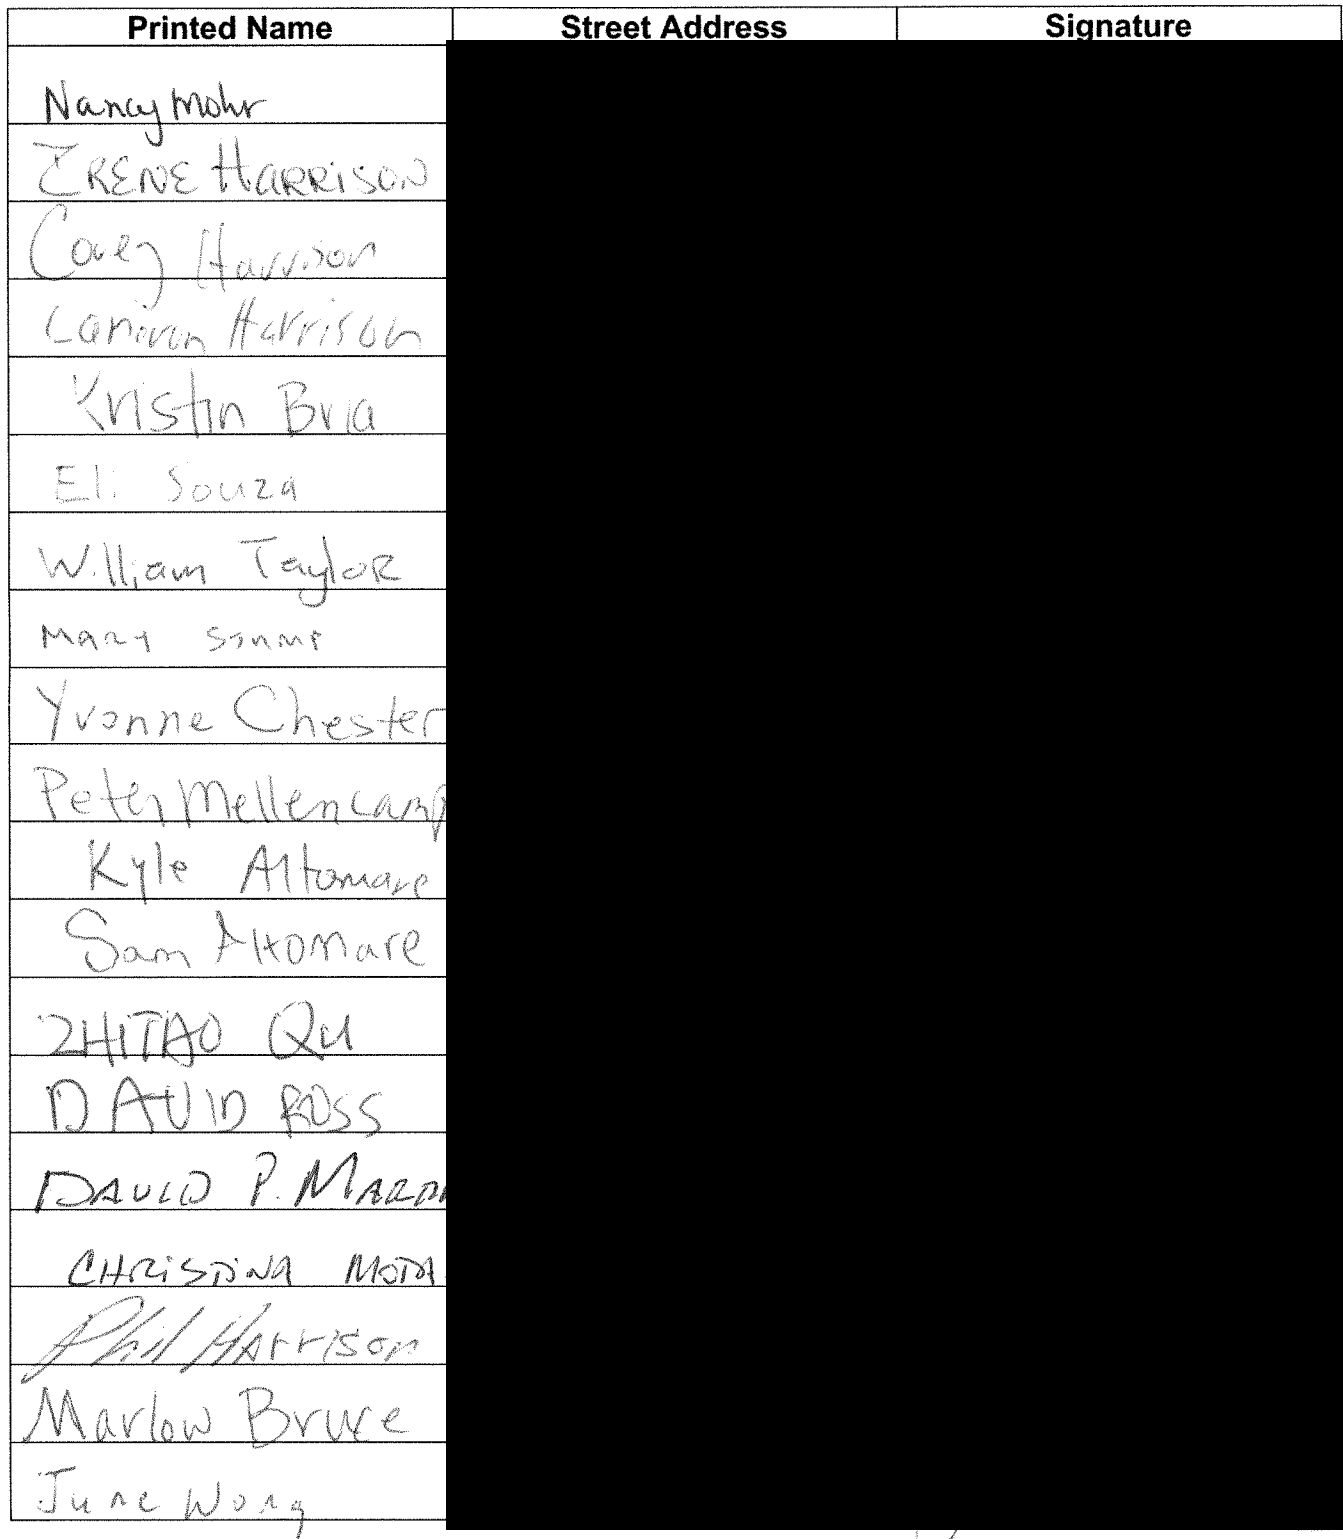 Printed Name Street Address Signature
Nancy Mohr
IRENE HARRISON
Corey Harrison
Cameron Harrison
Kristin Bria
Eli Souza
William Taylor
Mary
Yvonne Chester
Peter Mellencamp
Kyle Altomare
Sam Altomare
ZHITAO QU
DAVID ROSS
DAVID P.
CHRISTINA MOTA
Phil Harrison
Marlow Bruce
June Wong